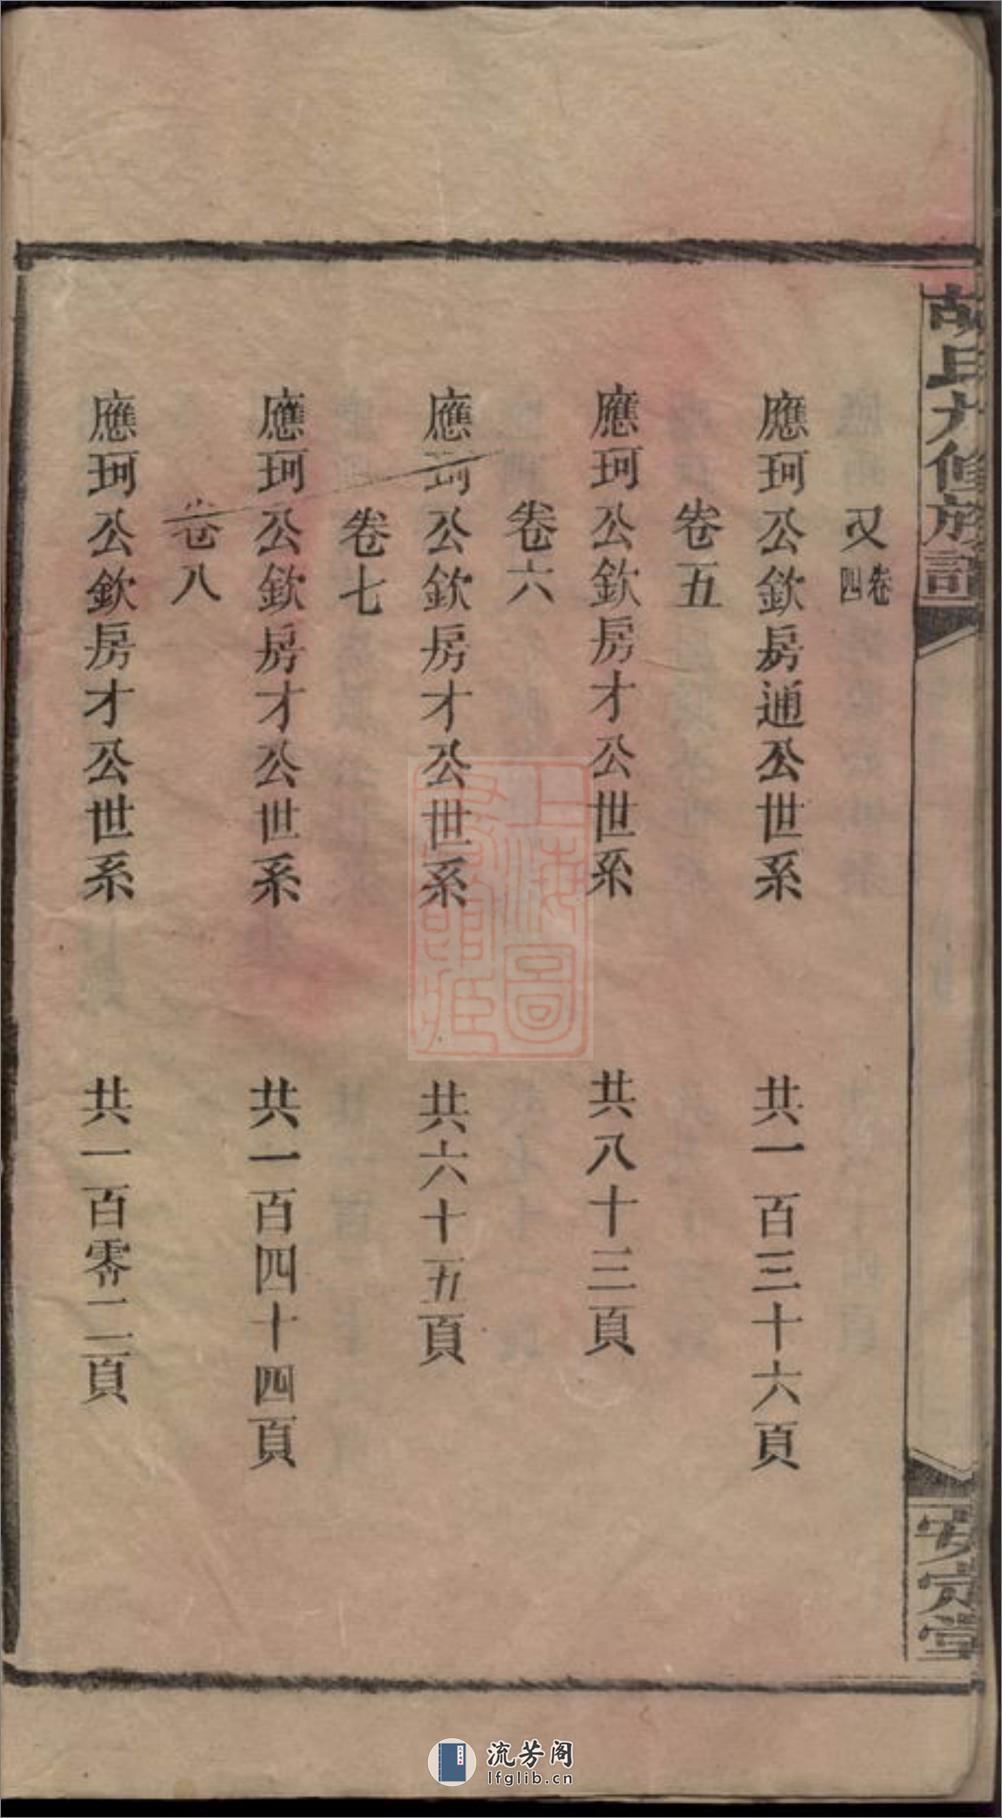 胡氏九修族譜
安定堂
又卷四
應珂公欽房通公世系 共一百三十六頁
卷五
應珂公欽房才公世系 共八十三頁
卷六
應珂公欽房才公世系 共六十五頁
卷七
應珂公欽房才公世系 共一百四十四頁
卷八
應珂公欽房才公世系 共一百零二頁
上海圖
書館藏
流芳阁
lfglib.cn